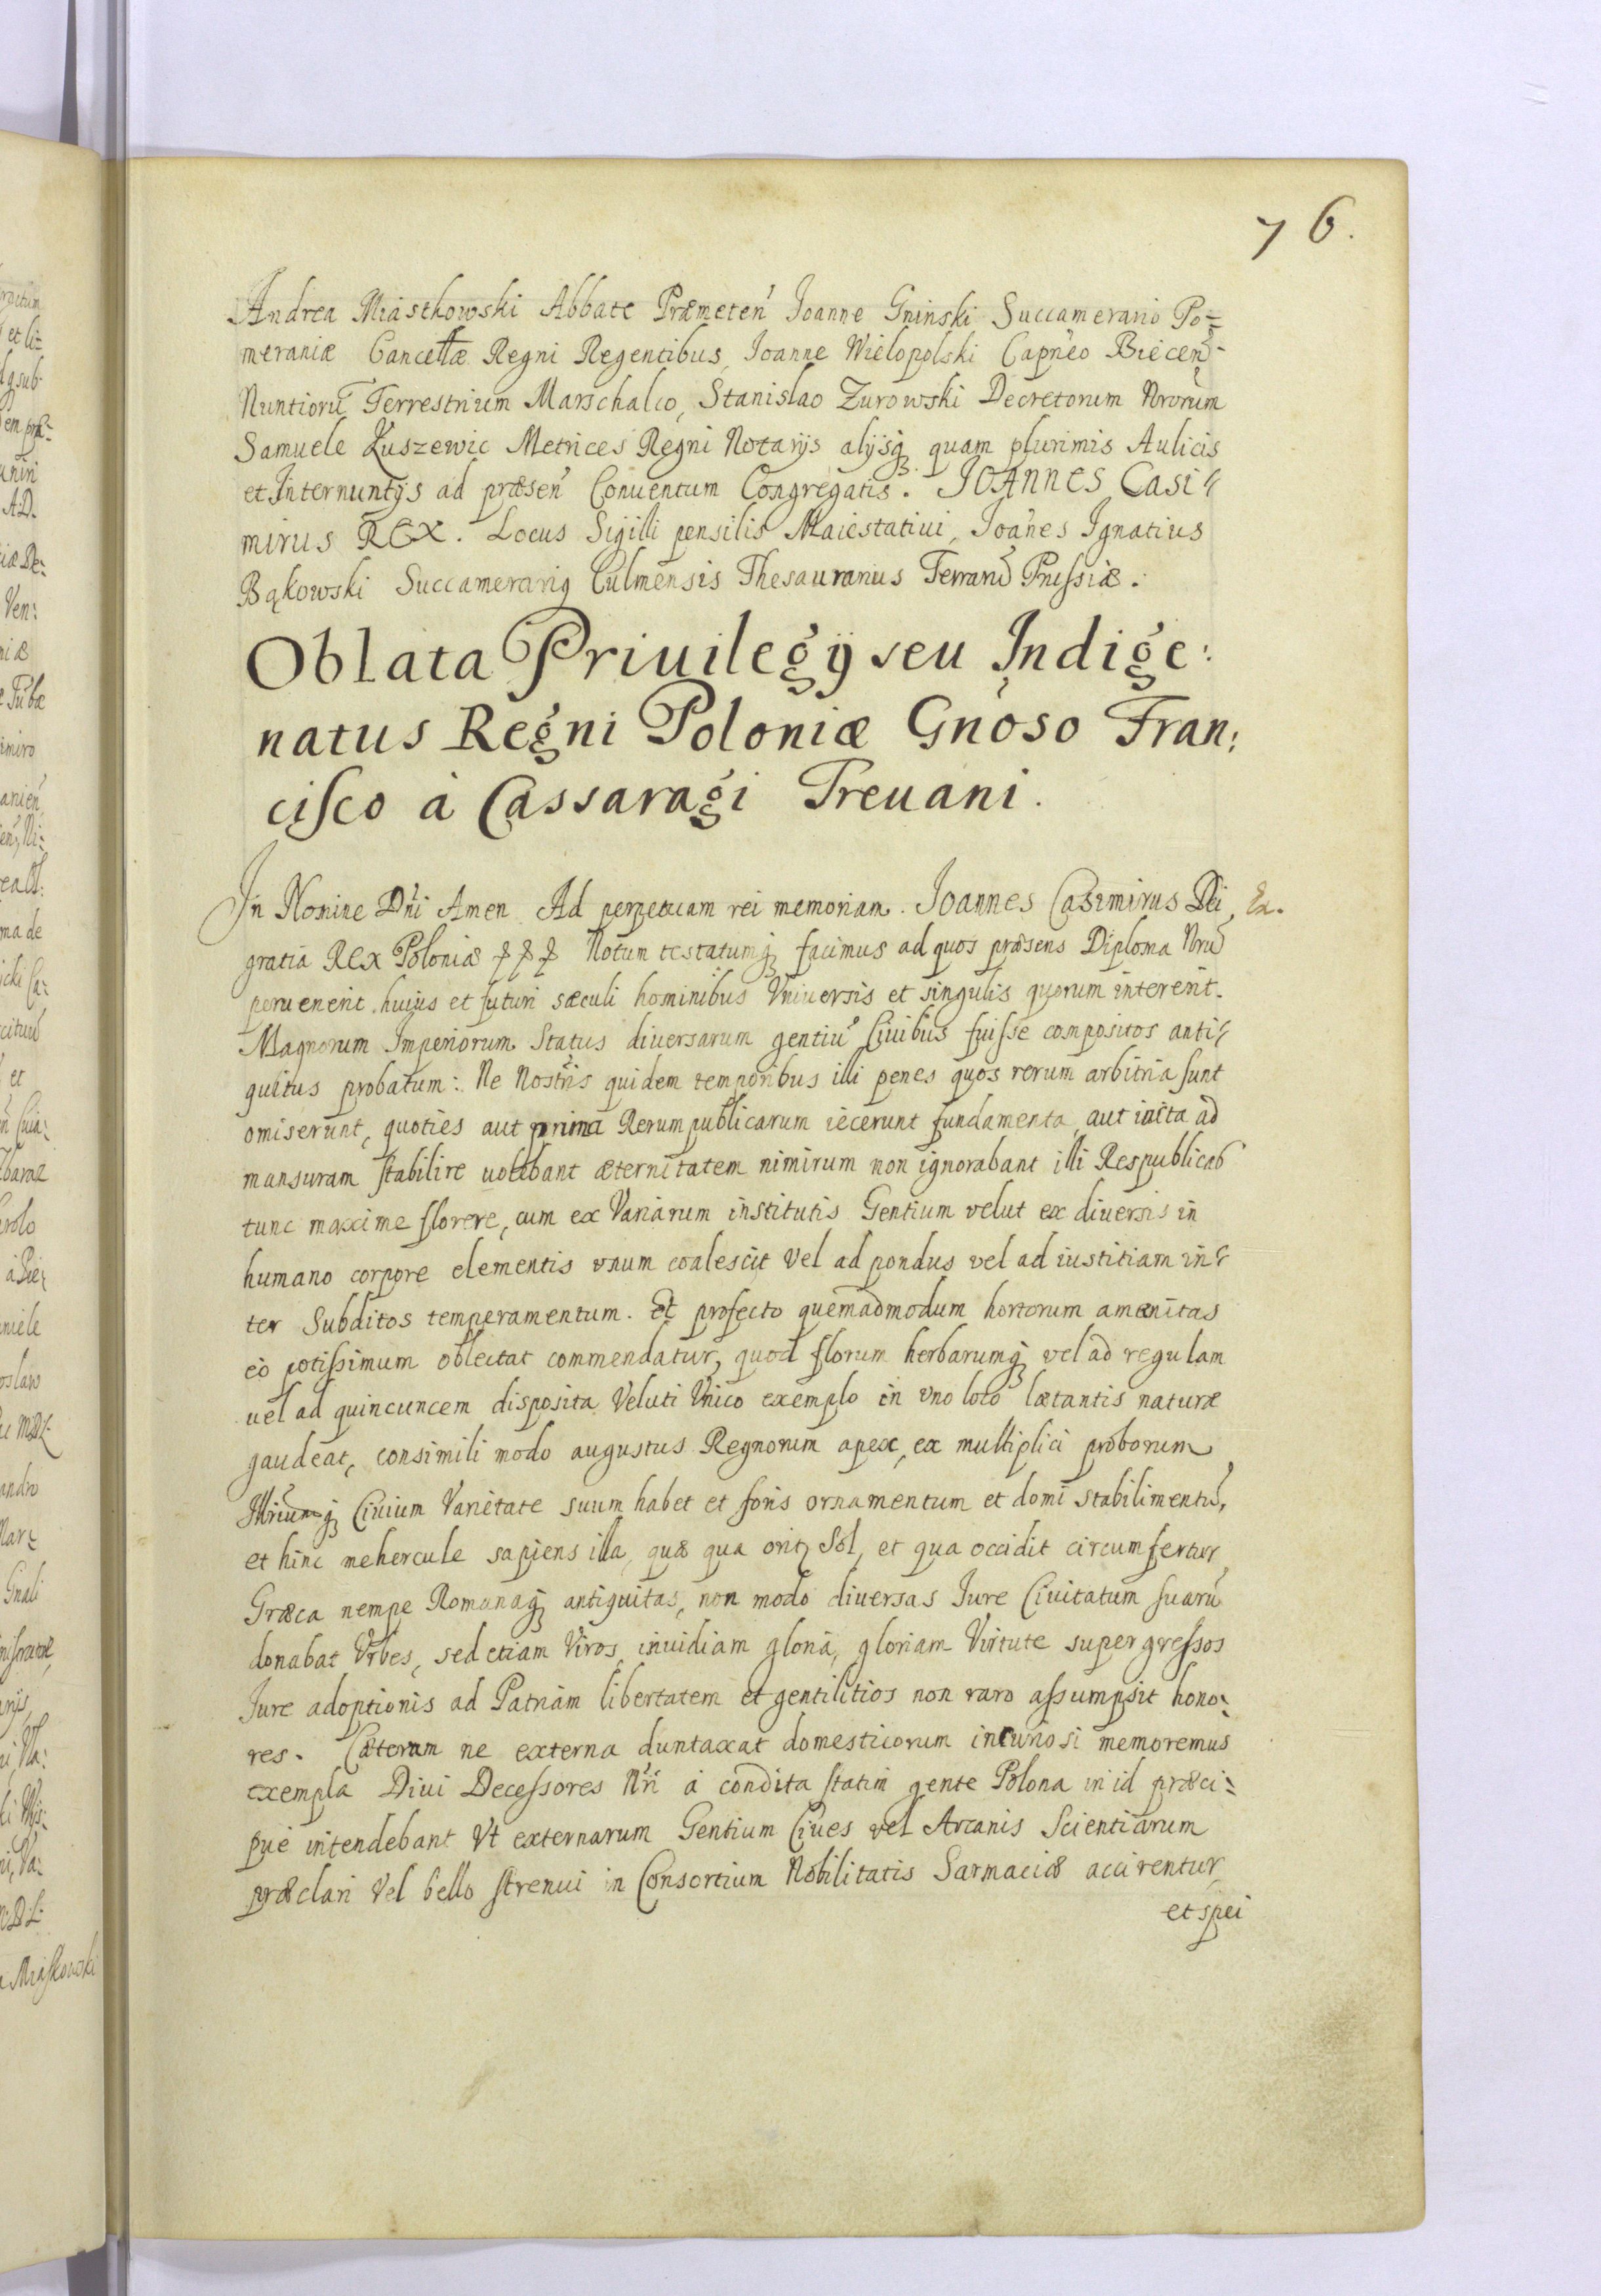 76.
Andrea Miastkowski Abbate Præmeteń Joanne Gninski Succamerario Po=
meraniæ Cancellæ Regni Regentibus, Joanne Wielopolski Capneo Biecen-
Nuntiorũ Terrestrium Marschalco, Stanislao Zurowski Decretorum Nrorum
Samuele Kuszewic Metrices Regni Notarijs alijsq quam plurimis Aulicis
et Internuntijs ad præseń Conuentum Congregatis. JOANNES CASI=
mirus REX. Locus Sigilli pensilis Maiestatiui, Joañes Ignatius
Bąkowski Succamerarig Culmensis Thesaurarius Terrarũ Prussiæ.
Oblata Priuilegij seu Indige:
natus Regni Poloniæ Gnoso Fran:
cisco à Cassaragi Treuani.
In Nomine Dńi Amen Ad perpetuam rei memoriam. Joannes Casimirus Dei
gratia REX Poloniæ Notum testatumq facimus ad quos præsens Diploma Nrũ
peruenerit huius et futuri sæculi hominibus Vniuersis et singulis quorum intererit.
Magnorum Imperiorum Status diuersarum gentiũ Ciuibus fuisse compositos anti=
quitus probatum: Ne Nostris quidem temporibus illi penes quos rerum arbitria sunt
omiserunt, quoties aut prima Rerumpublicarum iecerunt fundamenta, aut iacta ad
mansuram stabilire uolebant æternitatem nimirum non ignorabant illi Respublicas
tunc maxime florere, cum ex Variarum institutis Gentium velut ex diuersis in
humano corpore elementis vnum coalescit vel ad pondus vel ad iustitiam in=
ter Subditos temperamentum. Et profecto quemadmodum hortorum amænitas
eò potissimum oblectat commendatur, quod florum herbarumq vel ad regulam
uel ad quincuncem disposita Veluti Vnico exemplo in vno loco lætantis naturæ
gaudeat, consimili modo augustus Regnorum apex, ex multiplici proborum
Ciuium Varietate suum habet et foris ornamentum et domi stabilimentũ,
et hinc mehercule sapiens illa, quæ qua orit Sol, et qua occidit circumfertur
Græca nempe Romanaq antiquitas, non modo diuersas Jure Ciuitatum suarũ
donabat Vrbes, sed etiam Viros, inuidiam gloriâ, gloriam Virtute supergressos
Jure adoptionis ad Patriam libertatem et gentilitios non raro assumpsit hono=
res. Cæterum ne externa duntaxat domesticorum incuriosi memoremus
exempla Diui Decessores Nri à condita statim gente Polona in id præci=
pue intendebant Vt externarum Gentium Ciues vel Arcanis Scientiarum
præclari vel bello strenui in Consortium Nobilitatis Sarmaciæ accirentur,
et spei